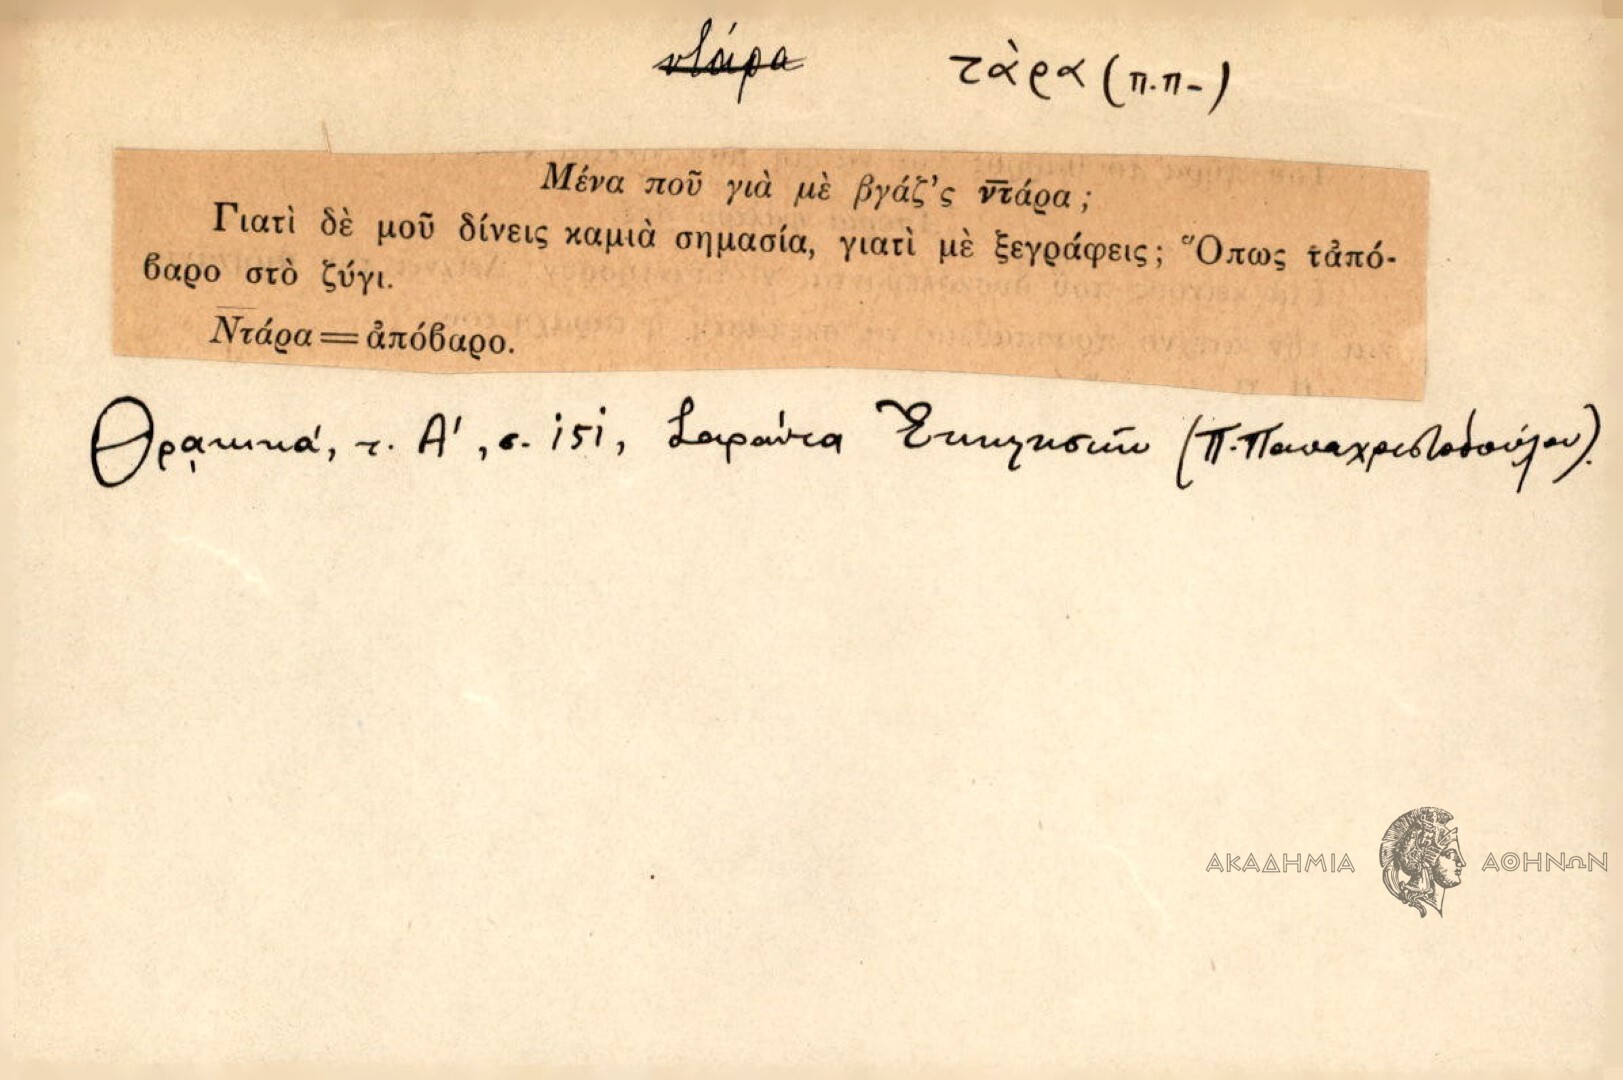 ντάρα τὰρα (π.π-)
Μένα ποῦ γιὰ μὲ βγάζ'ς ν̅τ̅άρα ;
Γιατὶ δὲ μοῦ δίνεις καμιὰ σημασία, γιατὶ μὲ ξεγράφεις ; Ὅπως τἀπό-
βαρο στὸ ζύγι.
Ν̅τ̅άρα = ἀπόβαρο.
Θρᾳκικά, τ. Α', σ. 151, Σαράντα Ἐκκλησιῶν (Π. Παπαχριστοδούλου).
ΑΚΑΔΗΜΙΑ ΑΘΗΝΩΝ